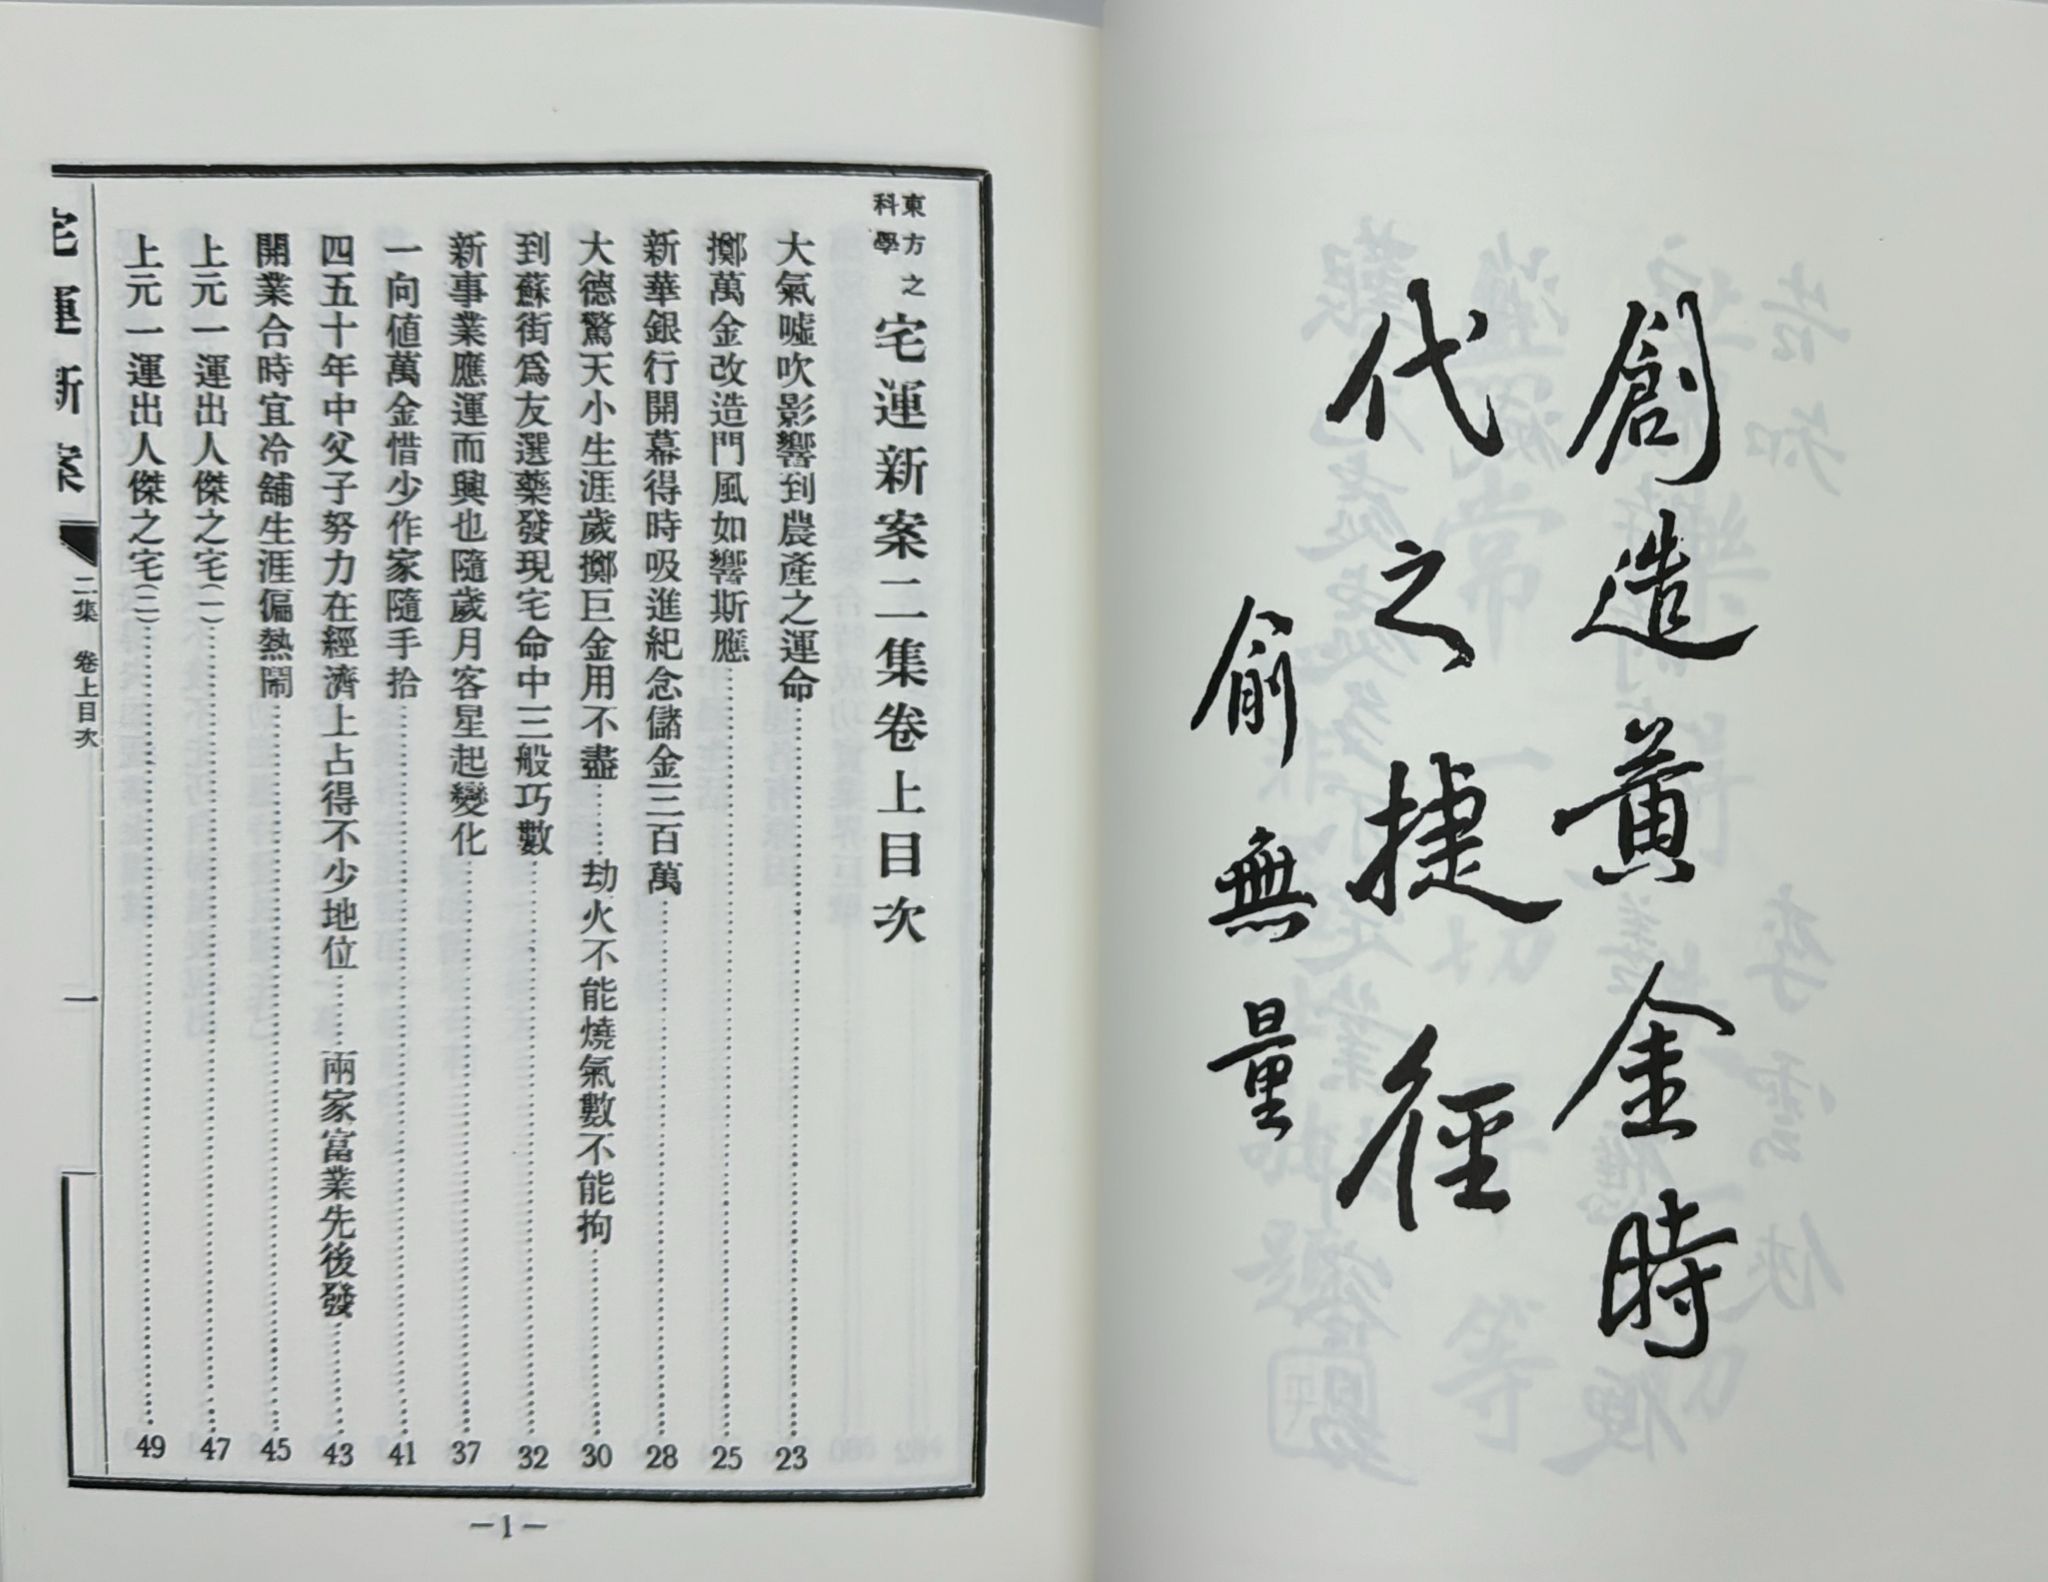 創造黄金時
代之捷徑
俞無量
東方之
科學
宅運新案二集卷上目次
大氣噓吹影響到農產之運命……23
擲萬金改造門風如響斯應……25
新華銀行開幕得時吸進紀念儲金三百萬……28
大德驚天小生涯歲擲巨金用不盡……劫火不能燒氣數不能拘……30
到蘇街爲友選藥發現宅命中三般巧數……32
新事業應運而興也隨歲月客星起變化……37
一向値萬金惜少作家隨手拾……41
四五十年中父子努力在經濟上占得不少地位……兩家富業先後發……43
開業合時宜冷舖生涯偏熱鬧……45
上元一運出人傑之宅(一)……47
上元一運出人傑之宅(二)……49
宅運新案
二集 卷上目次
一
—1—